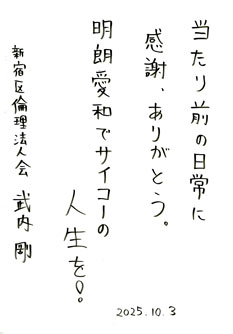 当たり前の日常に
感謝、ありがとう。
明朗愛和でサイコーの
人生を!
新宿区倫理法人会 武内 剛
2025.10.3